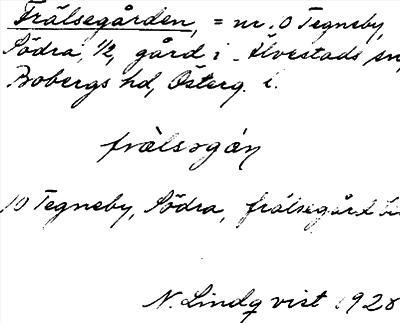 Frälsegården, = nr. 0 Tegneby,
Södra, 1/2, gård i Älvestads sn,
Bobergs hd, Österg. l.
frälsəgán
10 Tegneby, Södra, frälsegård
N. Lindqvist 1928